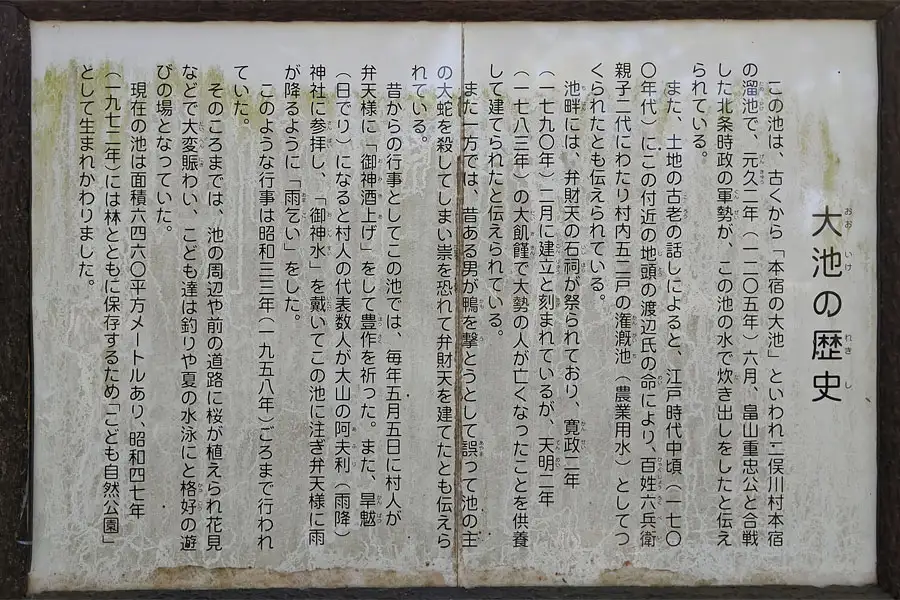 大池の歴史
この池は、古くから「本宿の大池」といわれ二俣川村本宿
の溜池で、元久二年（一二〇五年）六月、畠山重忠公と合戦
した北条時政の軍勢が、この池の水で炊き出しをしたと伝え
られている。
また、土地の古老の話しによると、江戸時代中頃（一七〇
〇年代）にこの付近の地頭の渡辺氏の命により、百姓六兵衛
親子二代にわたり村内五二戸の潅漑池（農業用水）としてつ
くられたとも伝えられている。
池畔には、弁財天の石祠が祭られており、寛政二年
（一七九〇年）二月に建立と刻まれているが、天明二年
（一七八三年）の大飢饉で大勢の人が亡くなったことを供養
して建てられたと伝えられている。
また一方では、昔ある男が鴨を撃とうとして誤って池の主
の大蛇を殺してしまい祟を恐れて弁財天を建てたとも伝えら
れている。
昔からの行事としてこの池では、毎年五月五日に村人が
弁天様に「御神酒上げ」をして豊作を祈った。また、旱魃
（日でり）になると村人の代表数人が大山の阿夫利（雨降）
神社に参拝し、「御神水」を戴いてこの池に注ぎ弁天様に雨
が降るように「雨乞い」をした。
このような行事は昭和三三年（一九五八年）ごろまで行われ
ていた。
そのころまでは、池の周辺や前の道路に桜が植えられ花見
などで大変賑わい、こども達は釣りや夏の水泳にと格好の遊
びの場となっていた。
現在の池は面積六四六〇平方メートルあり、昭和四七年
（一九七二年）には林とともに保存するため「こども自然公園」
として生まれかわりました。